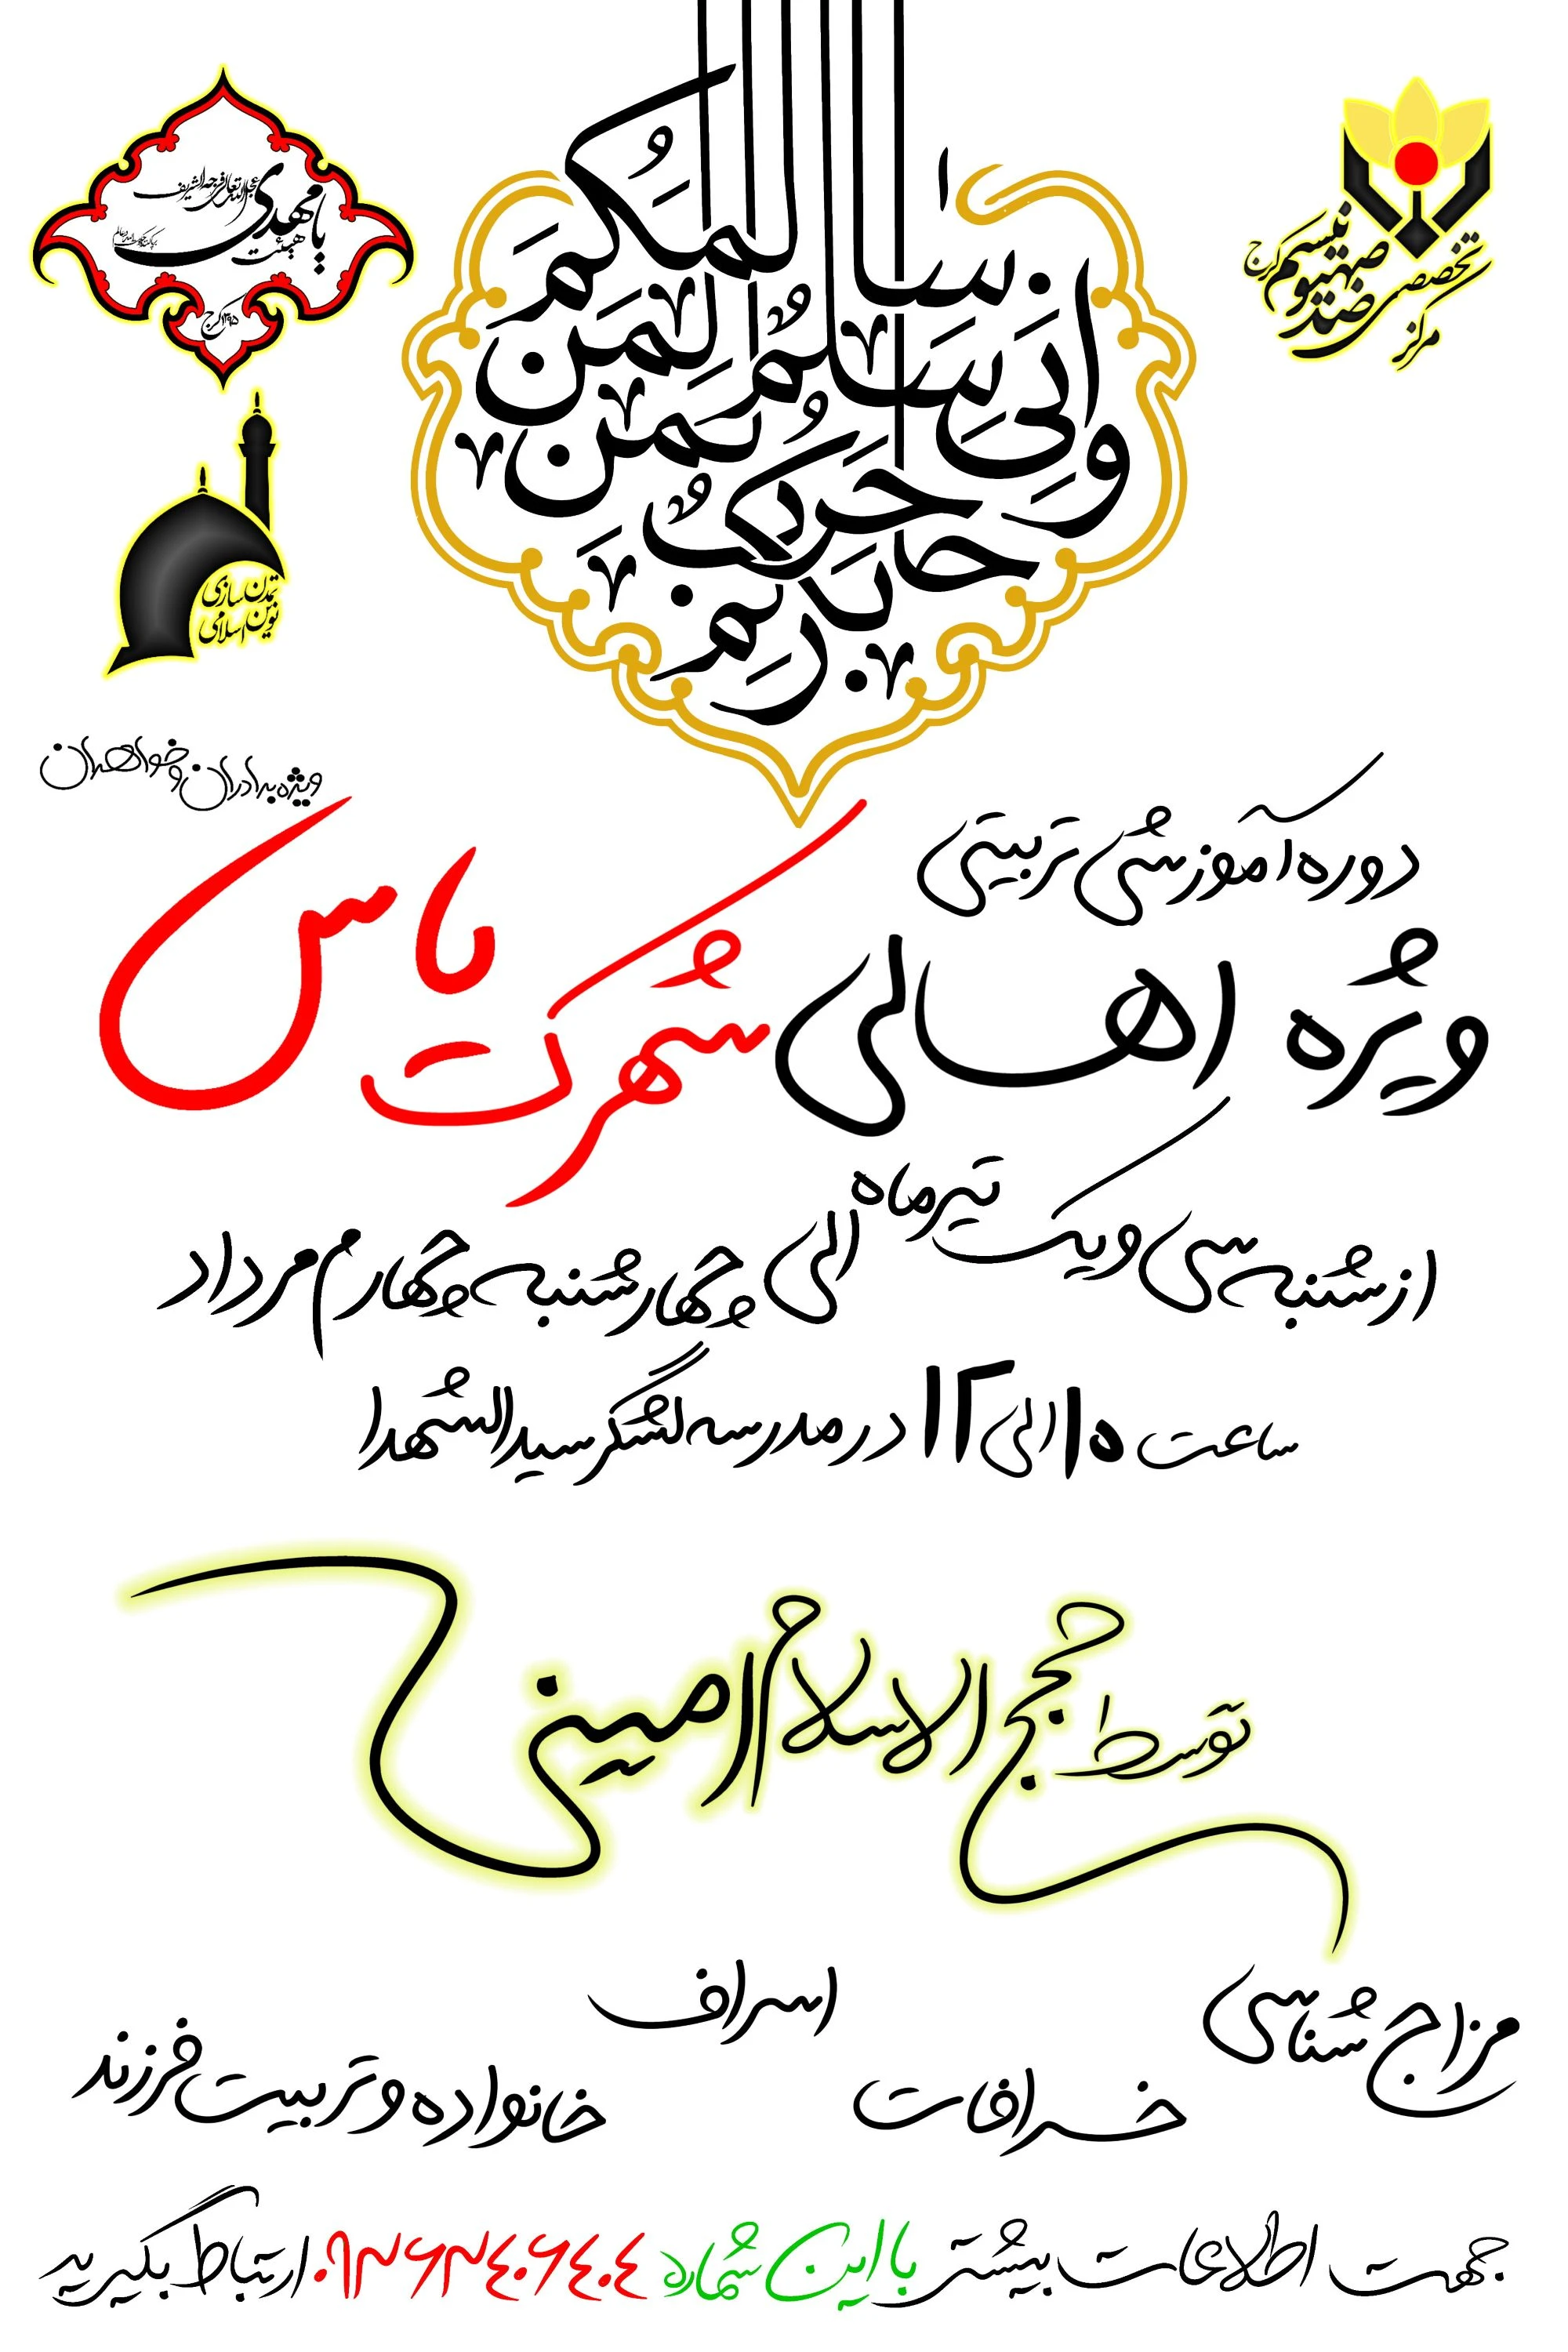 وانی سلم لمن سالمکم
و حرب لمن حاربکم
مرکز تخصصی ضد صهیونیسم کرج
هیئت یا مهدی عجل الله تعالی فرجه الشریف
۱۳۹۵ کرج
تمدن سازی
نوین اسلامی
ویژه برادران و خواهران
دوره آموزشی تربیتی
ویژه اهالی شهرک یاس
از شنبه سی و یک تیر ماه الی چهارشنبه چهارم مرداد
ساعت ۱۰ الی ۱۲ در مدرسه لشگر سید الشهدا
توسط حجج الاسلام امینی
مزاج شناسی
اسراف
خرافات
خانواده و تربیت فرزند
جهت اطلاعات بیشتر با این شماره ۰۹۳۶۳۴۰۶۴۰۴ ارتباط بگیرید